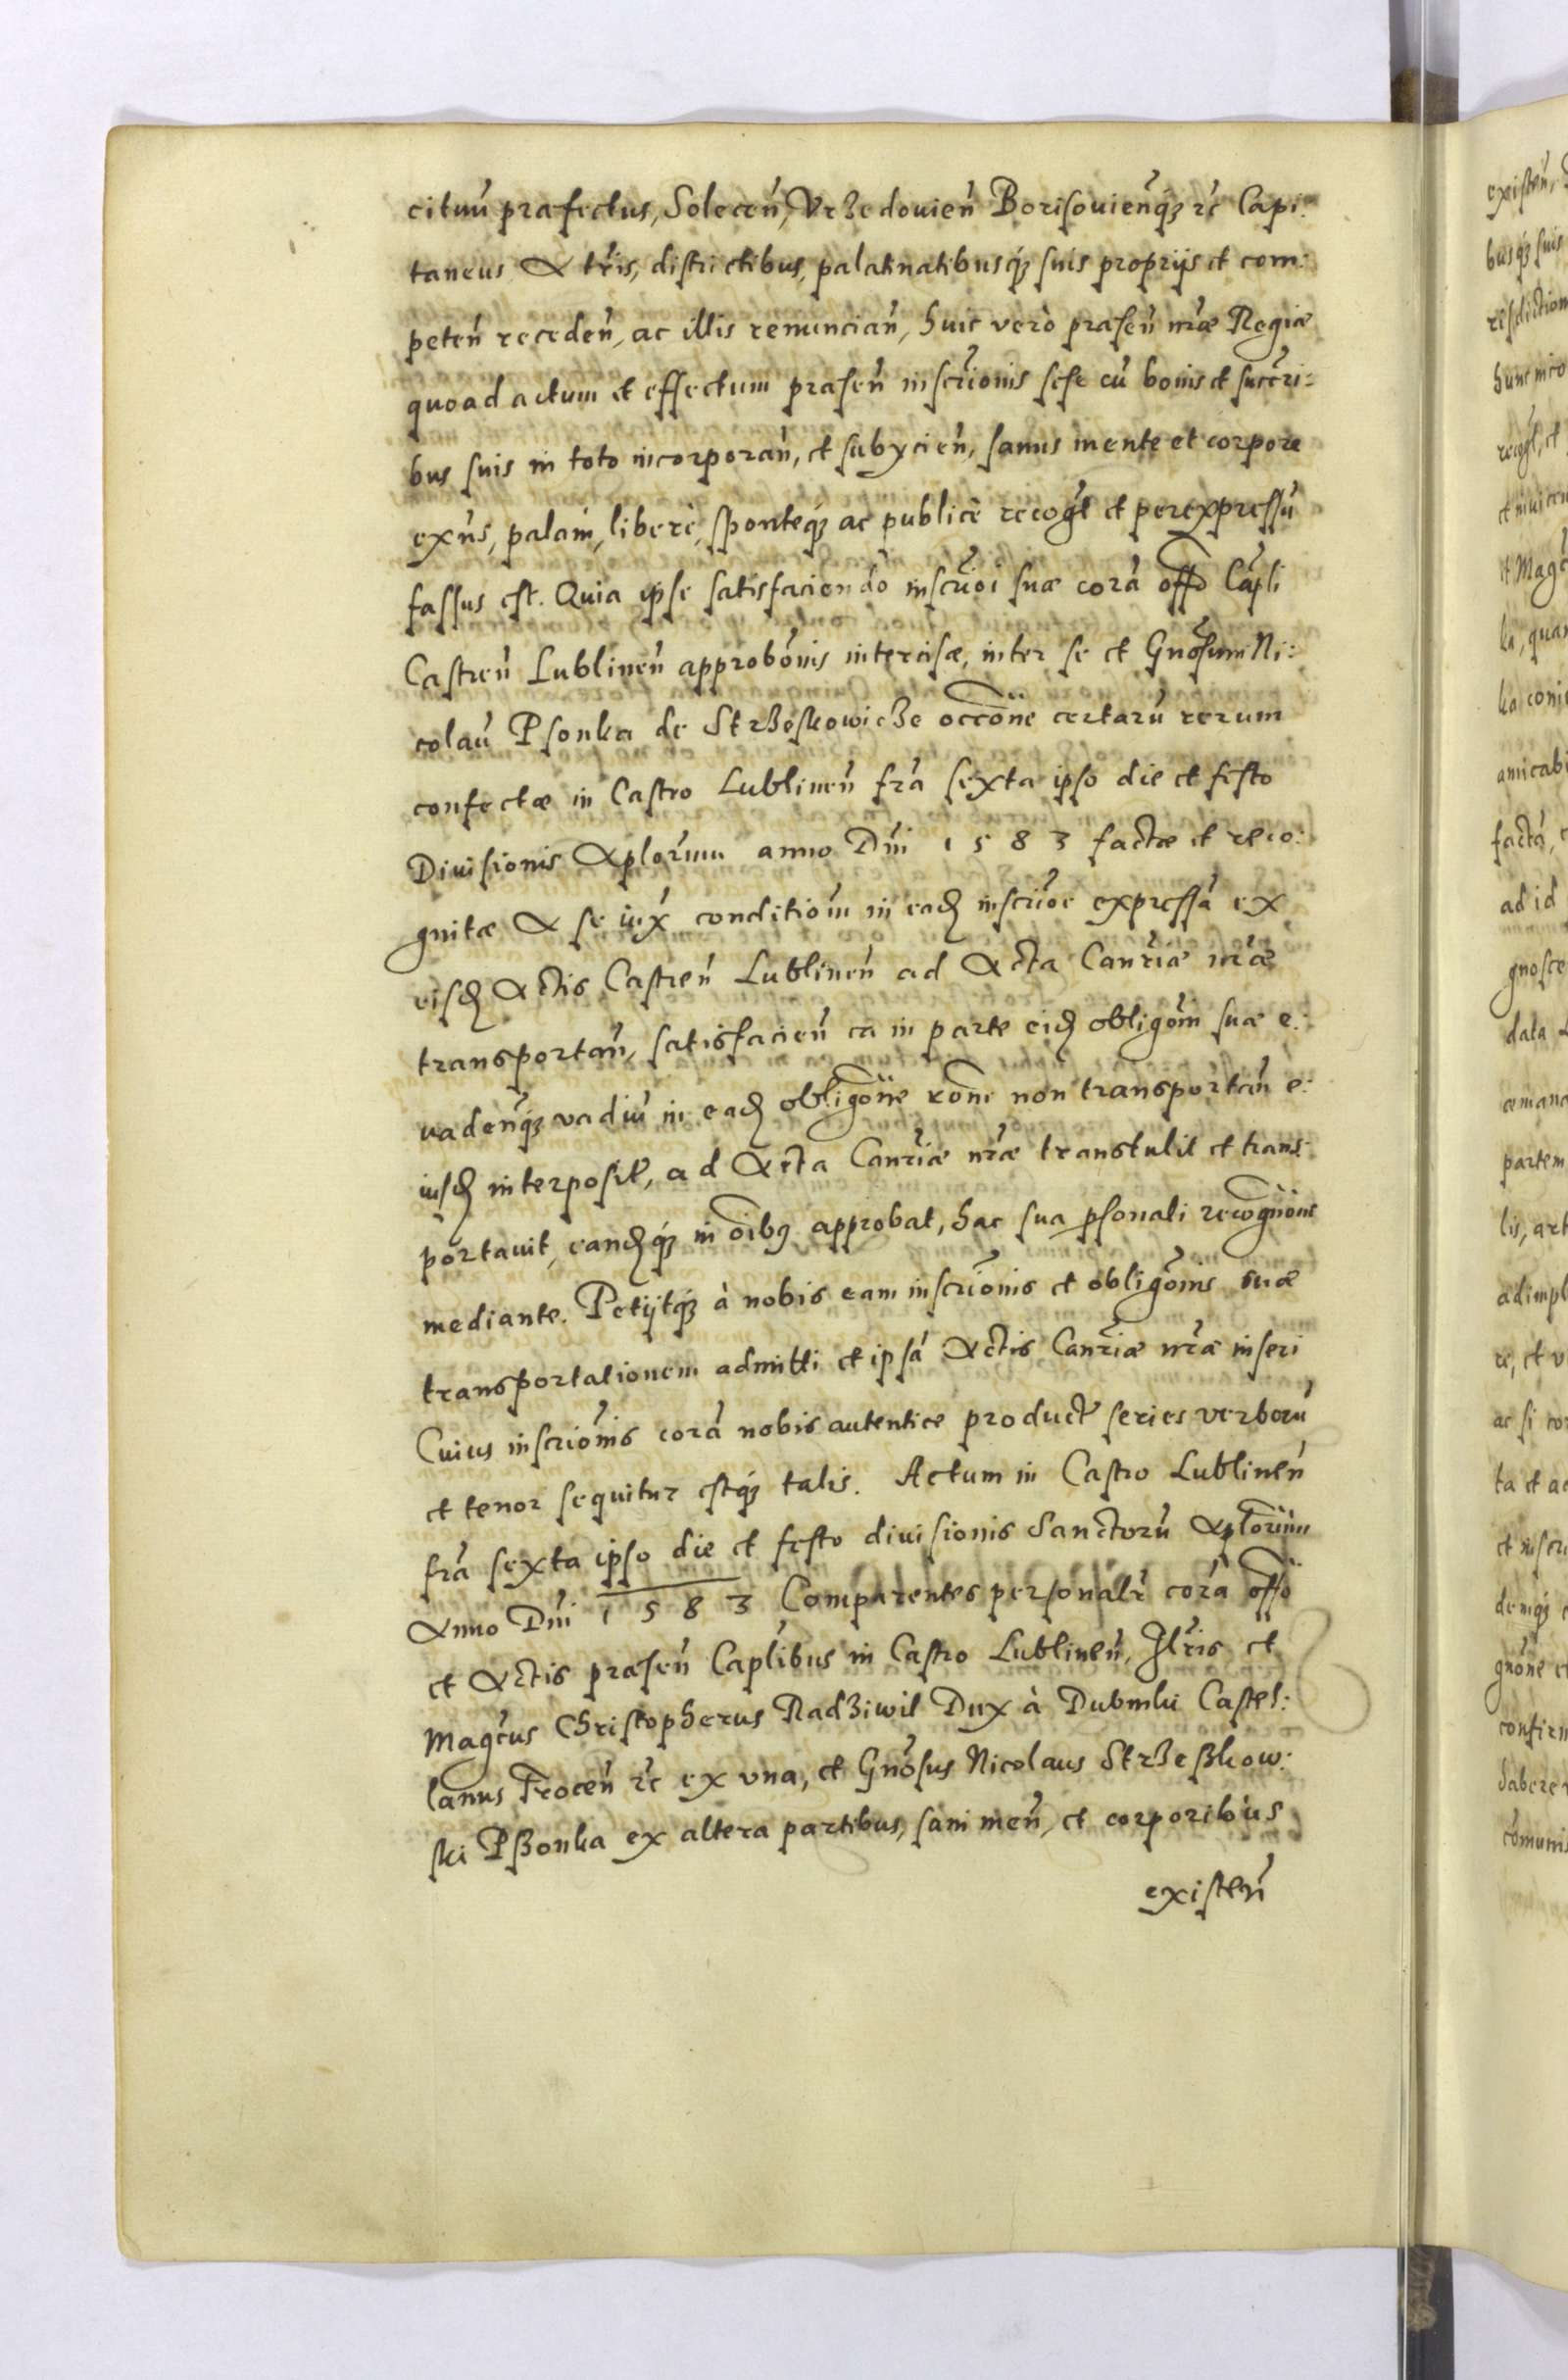 cituũ præfectus, Solecen̄, Vrzedouien̄ Borisouien̄q₃ rc̄ Capi:
taneus A tr̄is, districtibus, palatinatibusq₃ suis proprijs et com:
peten̄ receden̄, ac illis renuncian̄, huic verò præsen̄ nr̄æ Regiæ
quoad actum et effectum præsen̄ inscr̄ionis sese cū bonis et succr̄i:
bus suis in toto incorporan̄, et subycien̄, sanus mente et corpore
exn̄s, palam, liberè, sponteq₃ ac publicè recogt̄ et perexpressū
fassus est. Quia ipse satisfaciendo inscr̄ioi suæ corā offō Capl̄i
Castren̄ Lublinen̄ approbōnis intercisæ, inter se et Gnōsum Ni:
colaū Psonka de Strzeskowicze occōne certarū rerum
confectæ in Castro Lublinen̄ fr̄a sexta ipso die et festo
Diuisionis Aplōrum anno Dn̄i 1583 factæ et reco:
gnitæ A se iux̄ conditiōm in eaď inscr̄ioe expressā ex
eisď Actis Castren̄ Lublinen̄ ad Acta Canr̄iæ nr̄æ
transportan̄, satisfacien̄ ea in parte eiď obligōni suæ e:
uaden̄q₃ vadiū in eaď obligōne rōne non transportan̄ e:
iusď interposit̄, ad Acta Canr̄iæ nr̄æ transtulit et trans:
portauit, eanďq₃ in oībꝯ approbat, hac sua ꝑsonali recognōne
mediante. Petijtq₃ à nobis eam inscr̄ionis et obligōnis suæ
transportationem admitti et ipsā Actis Canr̄iæ nr̄æ inseri
Cuius inscr̄ionis corā nobis autentice product̄ series verborū
et tenor sequitur estq₃ talis. Actum in Castro Lublinen̄
fr̄a sexta ipso die et festo diuisionis Sanctorū Aplōrum
Anno Dn̄i 1583 Comparentes personalr̄ corā offō
et Actis præsen̄ Capl̄ibus in Castro Lublinen̄, Ill̄ris et
Magc̄us Christopherus Radziwil Dux à Dubinki Castel:
lanus Trocen̄ rc̄ ex vna, et Gnōsus Nicolaus Strzeßkow:
ski Pßonka ex altera partibus, sani men̄, et corporibus
existen̄